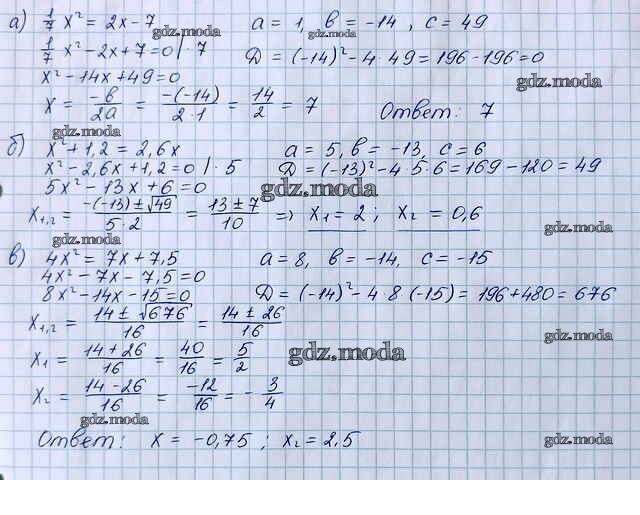 а) 1/7 x² = 2x - 7   a = 1, b = -14, c = 49
gdz.moda
1/7 x² - 2x + 7 = 0 | · 7   D = (-14)² - 4 · 49 = 196 - 196 = 0
x² - 14x + 49 = 0
gdz.moda
x = -b/2a = -(-14)/2·1 = 14/2 = 7   Ответ: 7
gdz.moda
б) x² + 1,2 = 2,6x   a = 5, b = -13, c = 6
x² - 2,6x + 1,2 = 0 | · 5   D = (-13)² - 4 · 5 · 6 = 169 - 120 = 49
5x² - 13x + 6 = 0
gdz.moda
x₁,₂ = -(-13) ± √49/5·2 = 13 ± 7/10 => x₁ = 2 ; x₂ = 0,6
gdz.moda
gdz.moda
в) 4x² = 7x + 7,5   a = 8, b = -14, c = -15
4x² - 7x - 7,5 = 0
8x² - 14x - 15 = 0   D = (-14)² - 4 · 8 · (-15) = 196 + 480 = 676
x₁,₂ = 14 ± √676/16 = 14 ± 26/16
gdz.moda
x₁ = 14 + 26/16 = 40/16 = 5/2
gdz.moda
x₂ = 14 - 26/16 = -12/16 = - 3/4
gdz.moda
Ответ: x = -0,75 ; x₂ = 2,5
gdz.moda